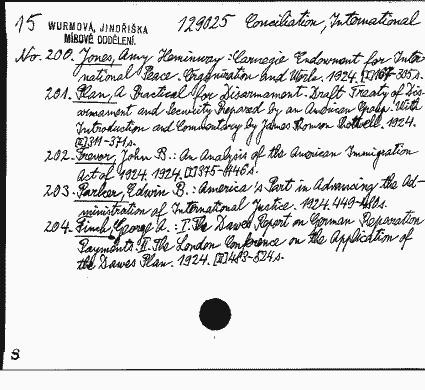 15 WURMOVÁ, JINDŘIŠKA 129825 Conciliation, International
MÍROVÉ ODDĚLENÍ.
No. 200. Jones, Amy Heminway: Carnegie Endowment for Inter
national Peace. Organization and Work. 1924.
201. Plan, A Practical for Disarmament. Draft Treaty of Dis-
armament and Security Prepared by an American Group. With
Introduction and Commentary by James Thomson Shotwell. 1924.
311-371s.
202. Trevor, John B.: An Analysis of the American Immigration
Act of 1924. 1924. 375-446s.
203. Parker, Edwin B.: America's Part in Advancing the Ad-
ministration of International Justice. 1924.
204. Finch, George A.: I. The Dawes Report on German Reparation
Payments. II. The London Conference on the Application of
the Dawes Plan. 1924. 483-524s.
S